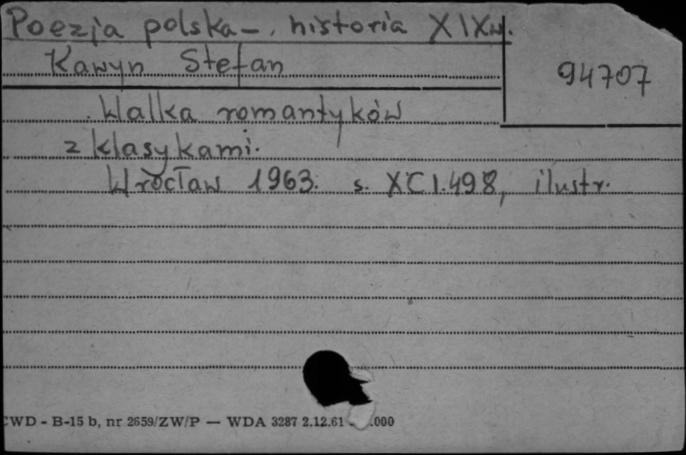 Poezja polska -, historia XIX w.
Kawyn Stefan
94707
Walka romantyków
z klasykami.
Wrocław 1963. s. XCI.498, ilustr.
CWD - B-15 b, nr 2659/ZW/P — WDA 3287 2.12.61 - .000